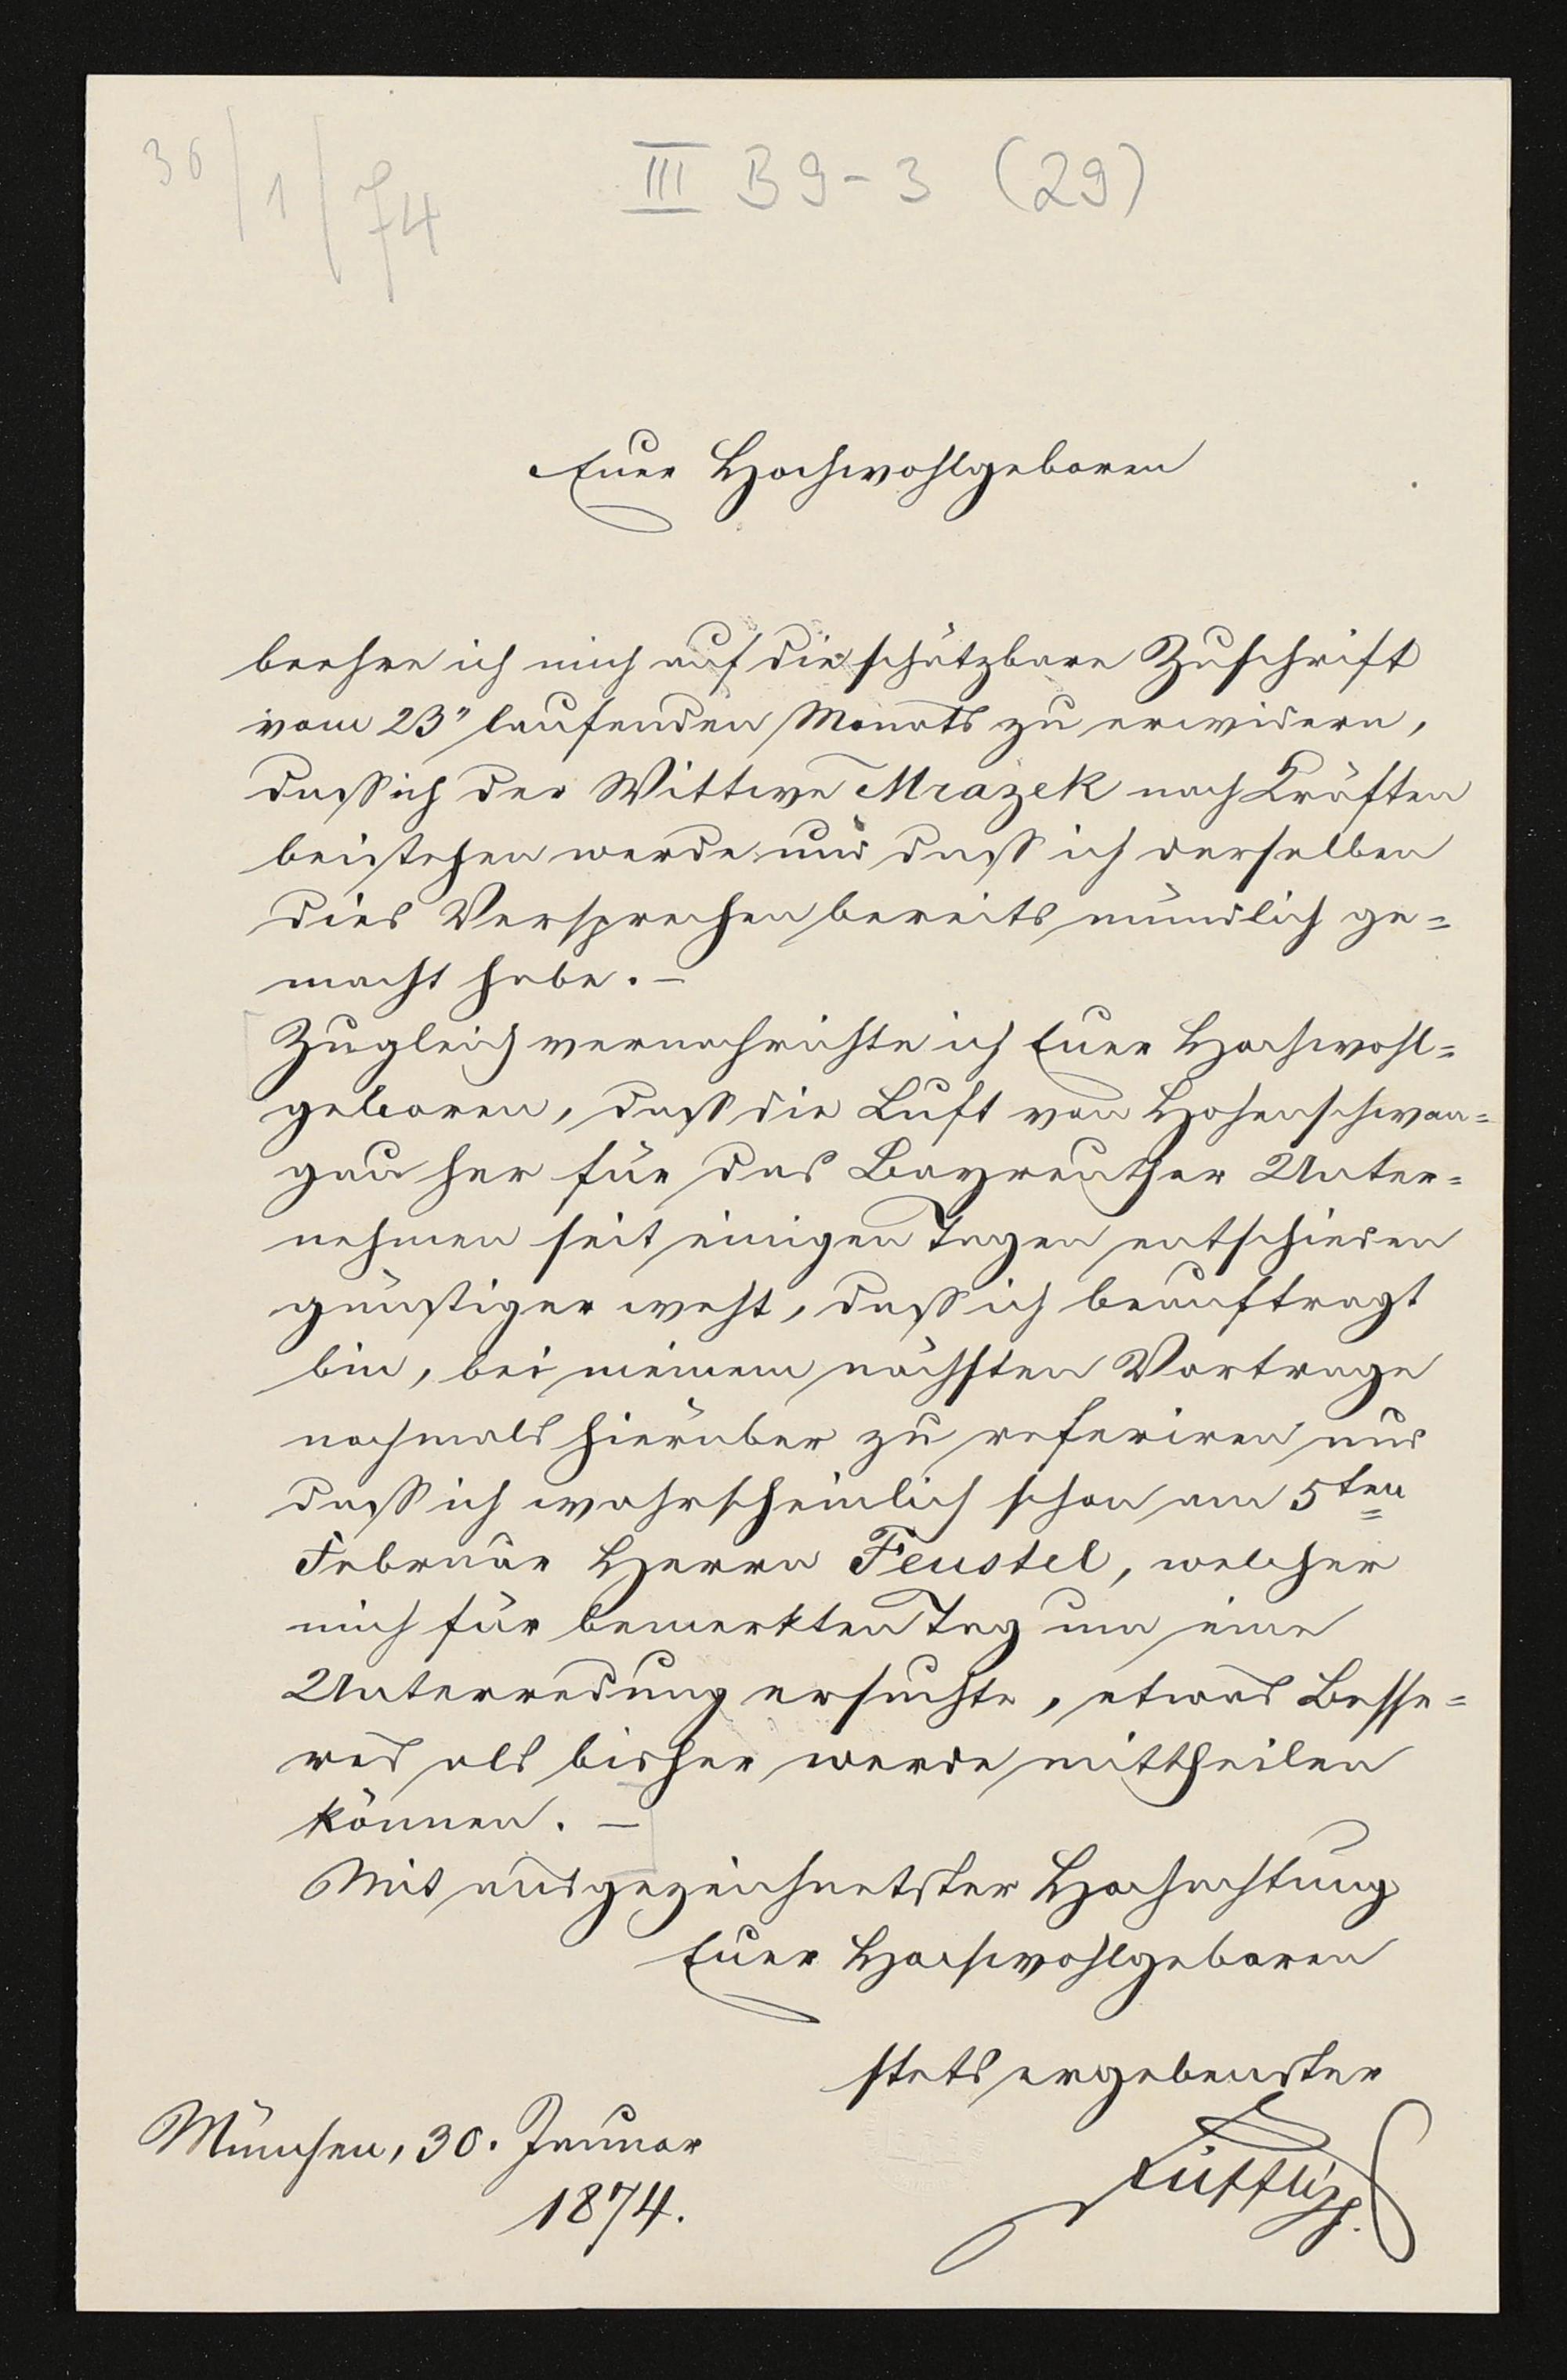 30/1/74
III B 9-3 (29)
Euer Hochwohlgeboren
beehre ich mich auf die schätzbare Zuschrift
vom 23" laufenden Monats zu erwidern,
daß ich der Wittwe Mrazek nach Kräften
beistehen werde und daß ich derselben
dies Versprechen bereits mündlich ge=
macht habe. —
Zugleich vernachrichte ich Euer Hochwohl=
geboren, daß die Luft von Hohenschwan=
gau her für das Bayreuther Unter=
nehmen seit einigen Tagen entschieden
günstiger weht, daß ich beauftragt
bin, bei meinem nächsten Vortrage
nochmals hierüber zu referiren und
daß ich wahrscheinlich schon am 5ten
Februar Herrn Feustel, welcher
mich für bemerkten Tag um eine
Unterredung ersuchte, etwas Besse=
res als bisher werde mittheilen
können. —
Mit ausgezeichnetster Hochachtung
Euer Hochwohlgeboren
stets ergebenster
München, 30. Januar
1874.
Düfflipp.